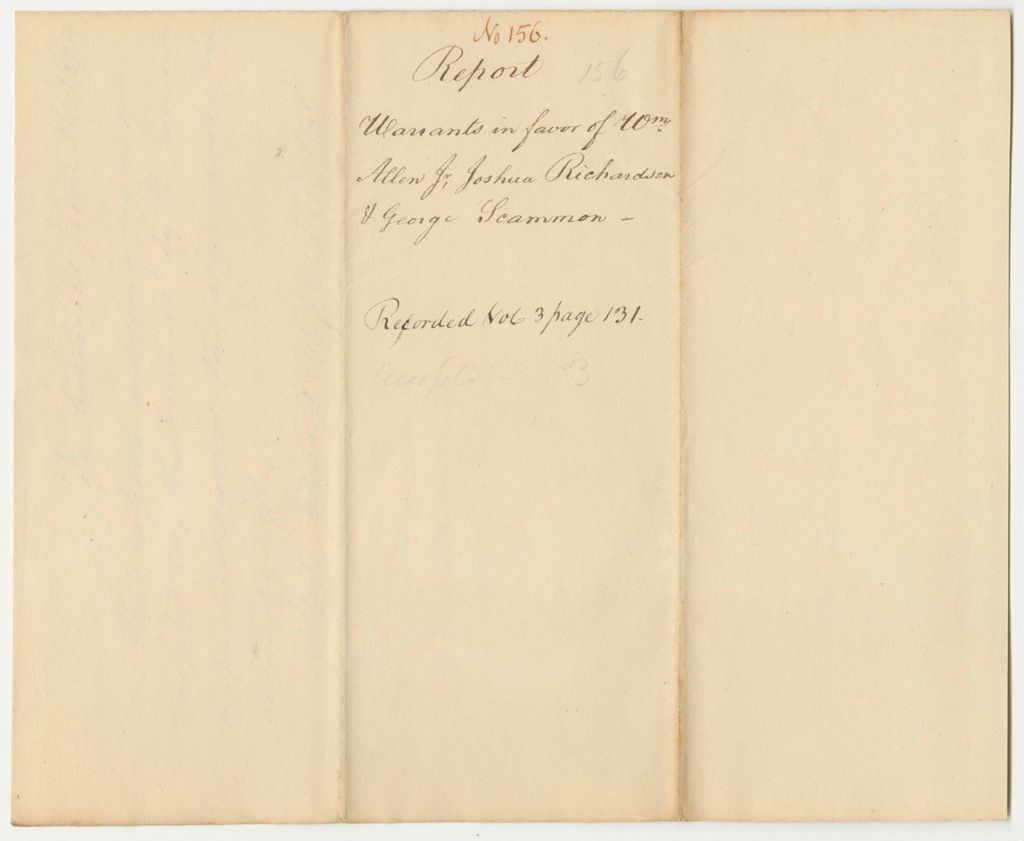 No 156.
Report 156
Warrants in favor of Wm
Allen Jr, Joshua Richardson
& George Scammon –
Recorded Vol 3 page 131.